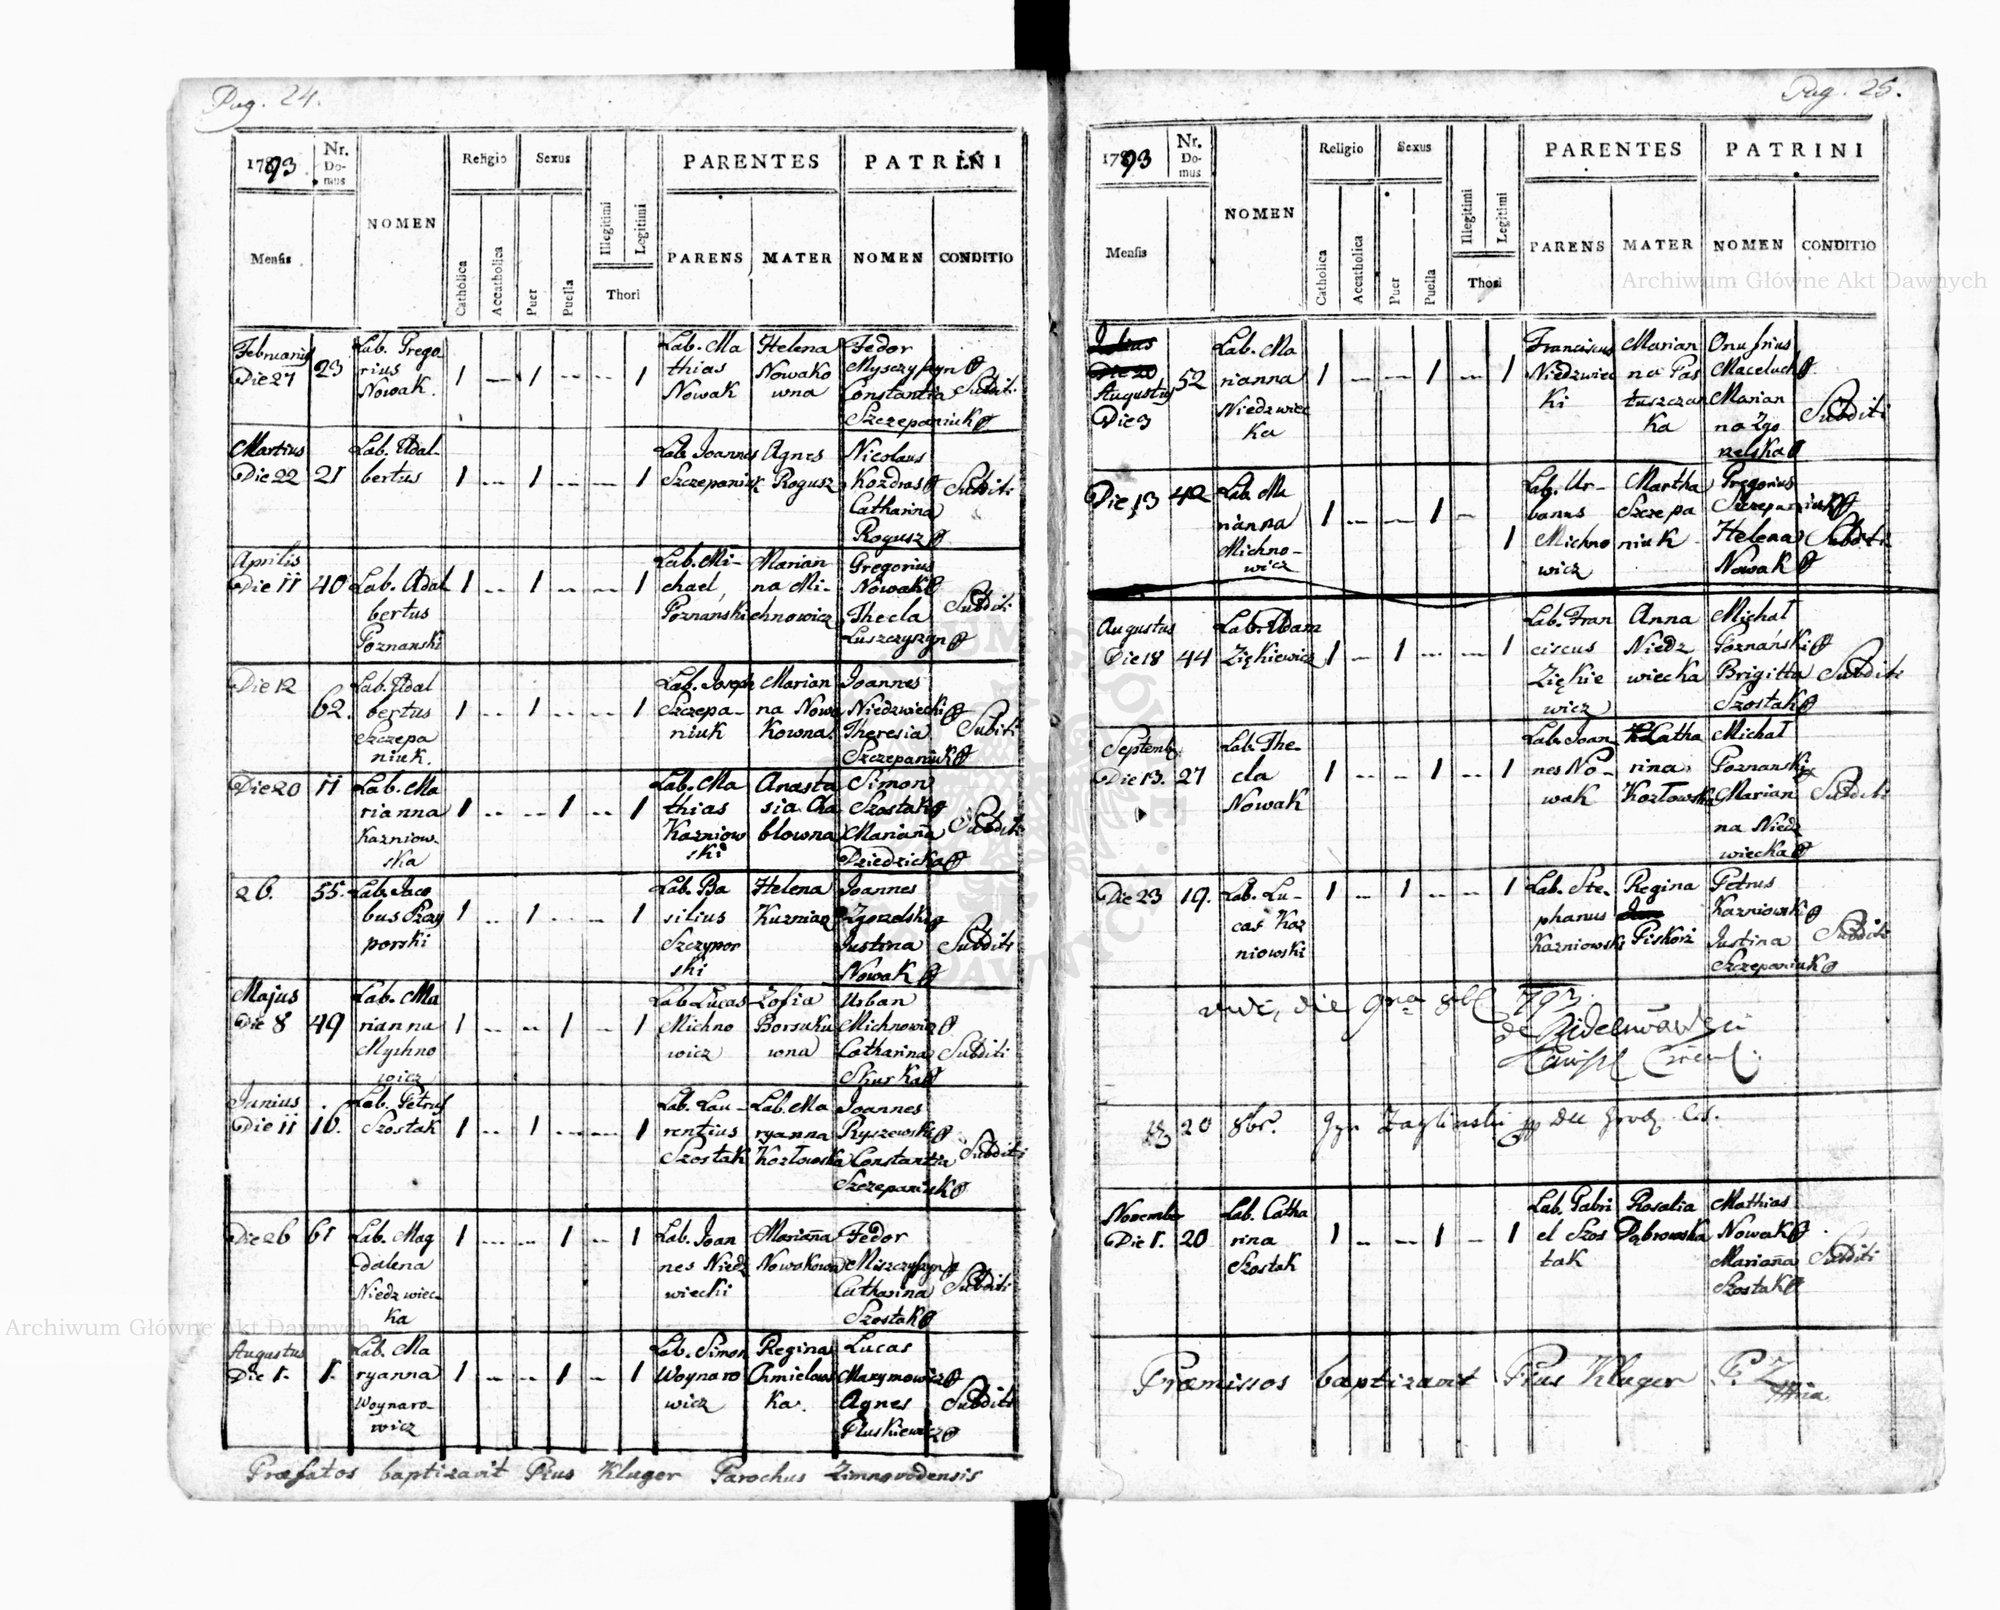 Pag. 24.
1793
Nr.
Do-
mus
NOMEN
Religio
Sexus
Illegitimi
Legitimi
PARENTES
PATRINI
Mensis
Catholica
Accatholica
Puer
Puella
Thori
PARENS
MATER
NOMEN
CONDITIO
Februarius
Die 27
23
Lab. Grego
rius
Nowak.
1 -- 1 -- -- 1
Lab. Ma
thias
Nowak
Helena
Nowako
wna
Fedor
Myszczyszyn
Constantia
Szczepaniuk
Subditi
Martius
Die 22
21
Lab. Adal-
bertus
1 -- 1 -- -- 1
Lab. Joannes
Szczepaniuk
Agnes
Rogusz
Nicolaus
Kozdras
Catharina
Rogusz
Subditi
Aprilis
Die 11
40
Lab. Adal
bertus
Poznanski
1 -- 1 -- -- 1
Lab. Mi-
chael,
Poznanski
Marian
na Mi-
chnowicz
Gregorius
Nowak
Thecla
Luszczyszyn
Subditi
Die 12
62.
Lab. Adal
bertus
Szczepa
niuk.
1 -- 1 -- -- 1
Lab. Joseph
Szczepa-
niuk
Marian
na Nowa
kowna
Joannes
Niedzwiecki
Theresia
Szczepaniuk
Subditi
Die 20
11
Lab. Ma
rianna
Kazniow-
ska
1 -- -- 1 -- 1
Lab. Ma
thias
Kazniow
ski
Anasta
sia Cha
blowna
Simon
Szostak
Marianna
Dziedzicka
Subditi
26.
55.
Lab. Jaco
bus Szczy
porski
1 -- 1 -- -- 1
Lab. Ba
silius
Szczypor
ski
Helena
Kuzniar
Joannes
Zgorzelski
Justina
Nowak
Subditi
Majus
Die 8
49
Lab. Ma
rianna
Mychno
wicz
1 -- -- 1 -- 1
Lab. Lucas
Michno
wicz
Zofia
Borsuku
wna
Urban
Michnowicz
Catharina
Skurka
Subditi
Junius
Die 11
16.
Lab. Petrus
Szostak
1 -- 1 -- -- 1
Lab. Lau-
rentius
Szostak
Lab. Ma
ryanna
Kozłowska
Joannes
Ryszewski
Constantia
Szczepaniuk
Subditi
Die 26
61
Lab. Mag
dalena
Niedzwiec-
ka
1 -- -- 1 -- 1
Lab. Joan
nes Niedz
wiecki
Marianna
Nowakowna
Fedor
Miszczyszyn
Catharina
Szostak
Subditi
Augustus
Die 1.
1.
Lab. Ma
ryanna
Woynaro-
wicz
1 -- -- 1 -- 1
Lab. Simon
Woynaro
wicz
Regina
Chmielows
ka.
Lucas
Marymowicz
Agnes
Pluskiewicz
Subditi
Præfatos baptizavit Pius Kluger Parochus Zimnovodensis
Pag. 25.
1793
Nr.
Do-
mus
NOMEN
Religio
Sexus
Illegitimi
Legitimi
PARENTES
PATRINI
Mensis
Catholica
Accatholica
Puer
Puella
Thori
PARENS
MATER
NOMEN
CONDITIO
Julius
Die 20
Augustus
Die 3
52
Lab. Ma
rianna
Niedzwiec
ka
1 -- -- 1 -- 1
Franciscus
Niedzwiec
ki
Marian
na Pas
tuszczan
ka
Onufrius
Maceluch
Marian
na Zgo
rzelska
Subditi
Die 13
42
Lab. Ma
rianna
Michno-
wicz
1 -- -- 1 -- 1
Lab. Ur-
banus
Michno
wicz
Martha
Szczepa
niuk
Gregorius
Szczepaniuk
Helena
Nowak
Subditi
Augustus
Die 18
44
Lab. Adam
Ziękiewicz
1 -- 1 -- -- 1
Lab. Fran
ciscus
Ziękie
wicz
Anna
Niedz
wiecka
Michał
Poznański
Brigitta
Szostak
Subditi
Septemb.
Die 13.
27
Lab. The-
cla
Nowak
1 -- -- 1 -- 1
Lab. Joan
nes No-
wak
Catha
rina
Kozłowska
Michał
Poznanski
Marian
na Niedz
wiecka
Subditi
Die 23
19.
Lab. Lu-
cas Kaz
niowski
1 -- 1 -- -- 1
Lab. Ste-
phanus
Kazniowski
Regina
Piskorz
Petrus
Kazniowski
Justina
Szczepaniuk
Subditi
vidi, die 9na 8bl 793
20 8br.
November
Die 1.
20
Lab. Catha
rina
Szostak
1 -- -- 1 -- 1
Lab. Gabri
el Szos
tak
Rosalia
Dąbrowska
Mathias
Nowak
Marianna
Szostak
Subditi
Præmissos baptizavit Pius Kluger P. Z
Archiwum Główne Akt Dawnych
Archiwum Główne Akt Dawnych